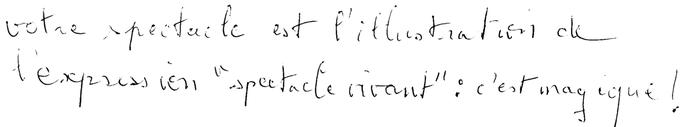 votre spectacle est l'illustration de
l'expression "spectacle vivant" : c'est magique !